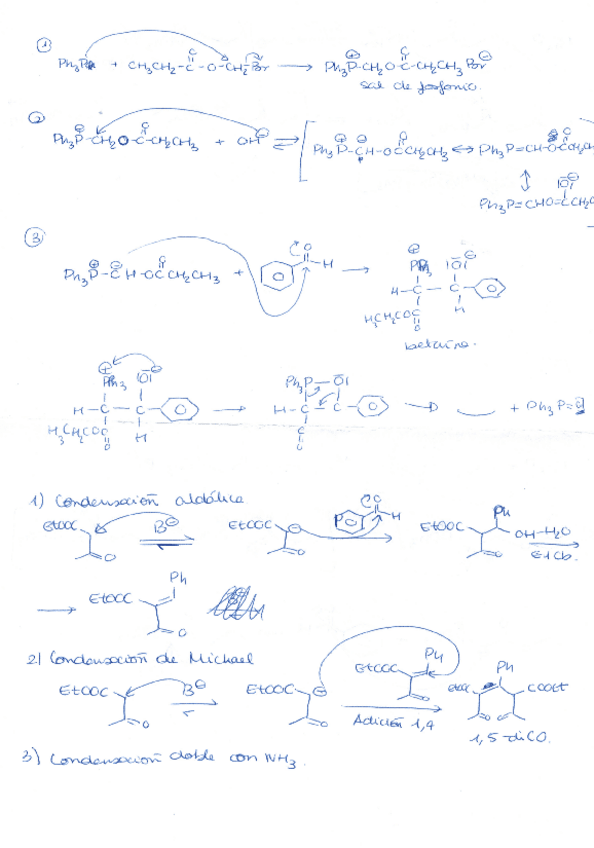 ①
Ph₃P: + CH₃CH₂-C-O-CH₂-Br → Ph₃P⊕-CH₂O-C-CH₂CH₃Br⊖
sal de fosfonio.
②
Ph₃P⊕-CH₂O-C-CH₂CH₃ + OH⊖ ⇌ [ Ph₃P⊕-CH⊖-OCCH₂CH₃ ↔ Ph₃P=CH-O
↕
Ph₃P=CHO=CCH₂
③
Ph₃P⊕-CH⊖-OCCH₂CH₃ + O H → Ph₃ |O|⊖
H-C-C-
H₃CH₂COC H
O
betaina.
Ph₃ |O|⊖ → Ph₃P-O| → + Ph₃P=O
H-C-C- H-C-C-
H₃CH₂COC H C
O O
1) Condensación aldólica
EtOOC B⊖ ⇌ EtOOC ⊖ O H → EtOOC Ph OH -H₂O
O O O E1Cb.
→ EtOOC Ph
O
2) Condensación de Michael
EtOOC B⊖ ⇌ EtOOC ⊖ EtOOC Ph → Ph
O O O EtOOC COOEt
Adición 1,4 O O
1,5-diCO.
3) Condensación doble con NH₃.